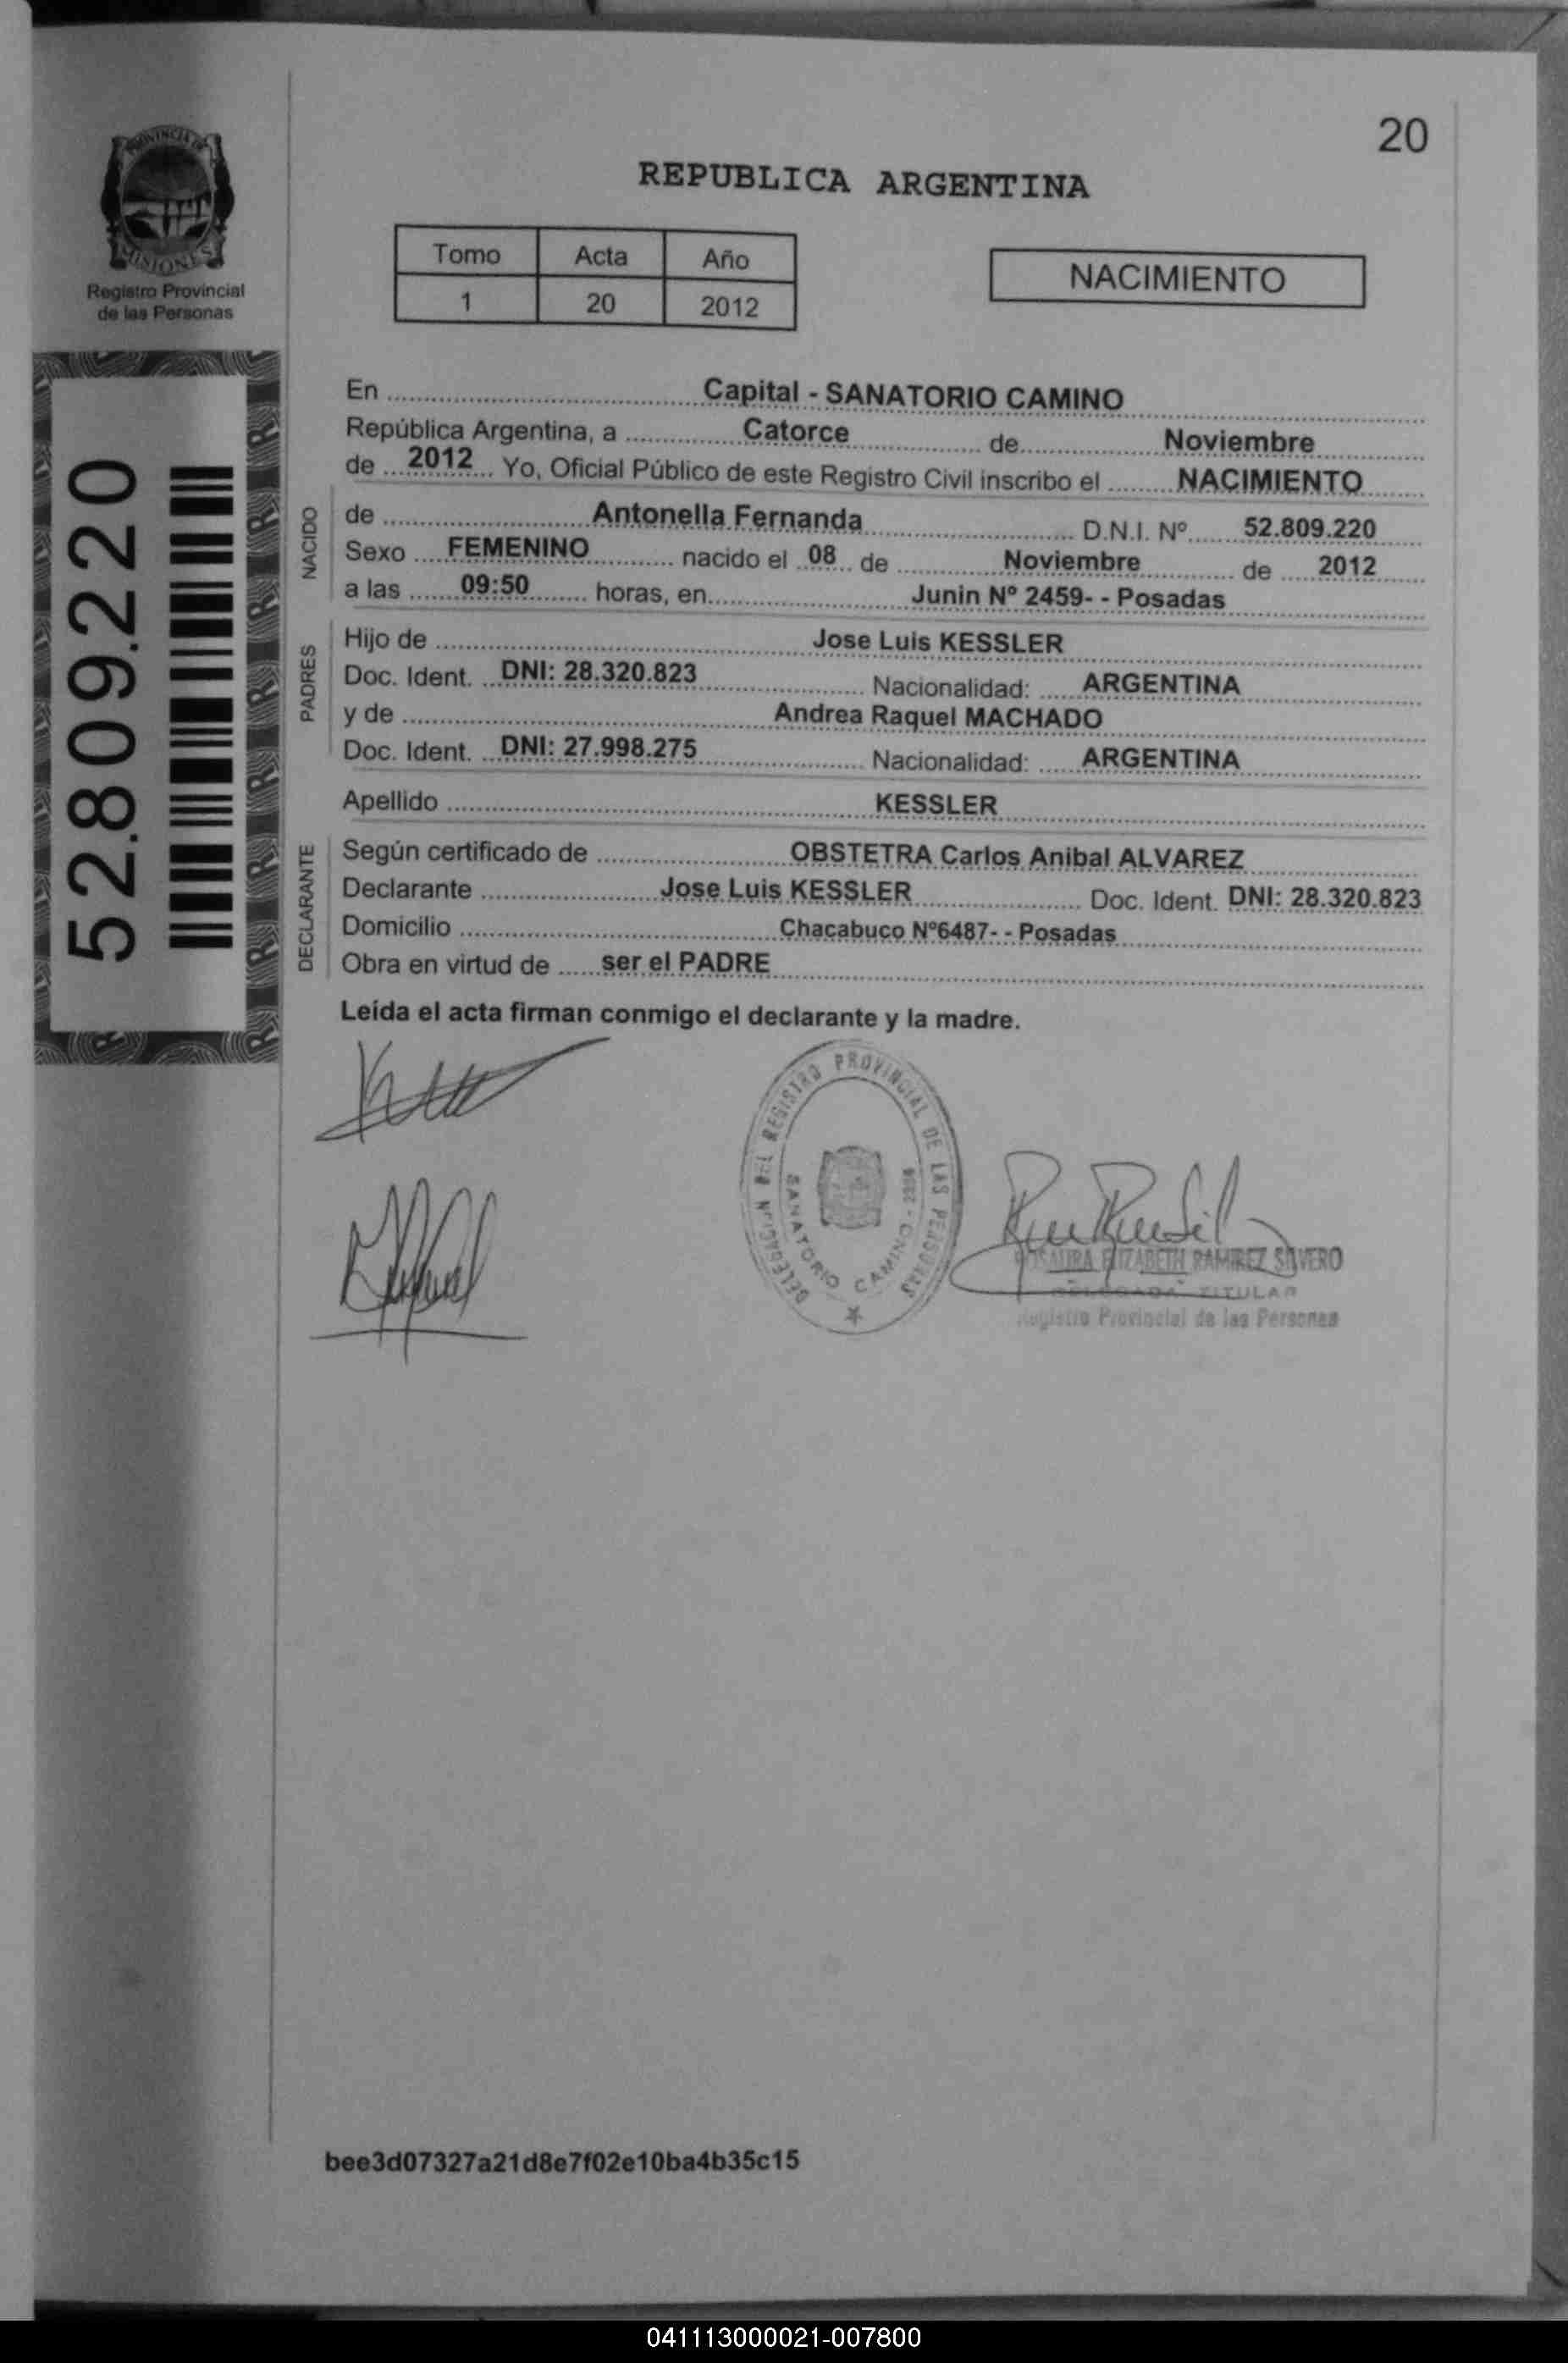 20
PROVINCIA DE
MISIONES
Registro Provincial
de las Personas
REPUBLICA ARGENTINA
Tomo Acta Año
1 20 2012
NACIMIENTO
52.809.220
En Capital - SANATORIO CAMINO
República Argentina, a Catorce de Noviembre
de 2012 Yo, Oficial Público de este Registro Civil inscribo el NACIMIENTO
NACIDO
de Antonella Fernanda D.N.I. Nº 52.809.220
Sexo FEMENINO nacido el 08 de Noviembre de 2012
a las 09:50 horas, en Junin Nº 2459- - Posadas
PADRES
Hijo de Jose Luis KESSLER
Doc. Ident. DNI: 28.320.823 Nacionalidad: ARGENTINA
y de Andrea Raquel MACHADO
Doc. Ident. DNI: 27.998.275 Nacionalidad: ARGENTINA
Apellido KESSLER
DECLARANTE
Según certificado de OBSTETRA Carlos Anibal ALVAREZ
Declarante Jose Luis KESSLER Doc. Ident. DNI: 28.320.823
Domicilio Chacabuco Nº6487- - Posadas
Obra en virtud de ser el PADRE
Leída el acta firman conmigo el declarante y la madre.
DELEGACION DEL REGISTRO PROVINCIAL DE LAS PERSONAS
SANATORIO CAMINO
ROSAURA ELIZABETH RAMIREZ SILVERO
DELEGADA TITULAR
Registro Provincial de las Personas
bee3d07327a21d8e7f02e10ba4b35c15
041113000021-007800